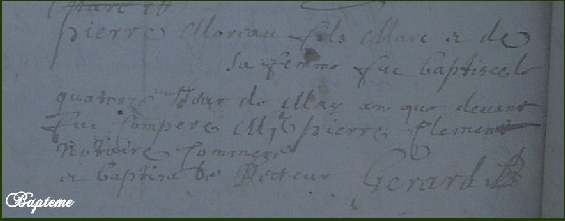 pierre Moreau fils Marc & de
sa femme fut baptisé le
quatorze jour de May an que devant
fut compere Mre pierre Clement
Notaire commere
& baptisa le Recteur Gerard
Bapteme